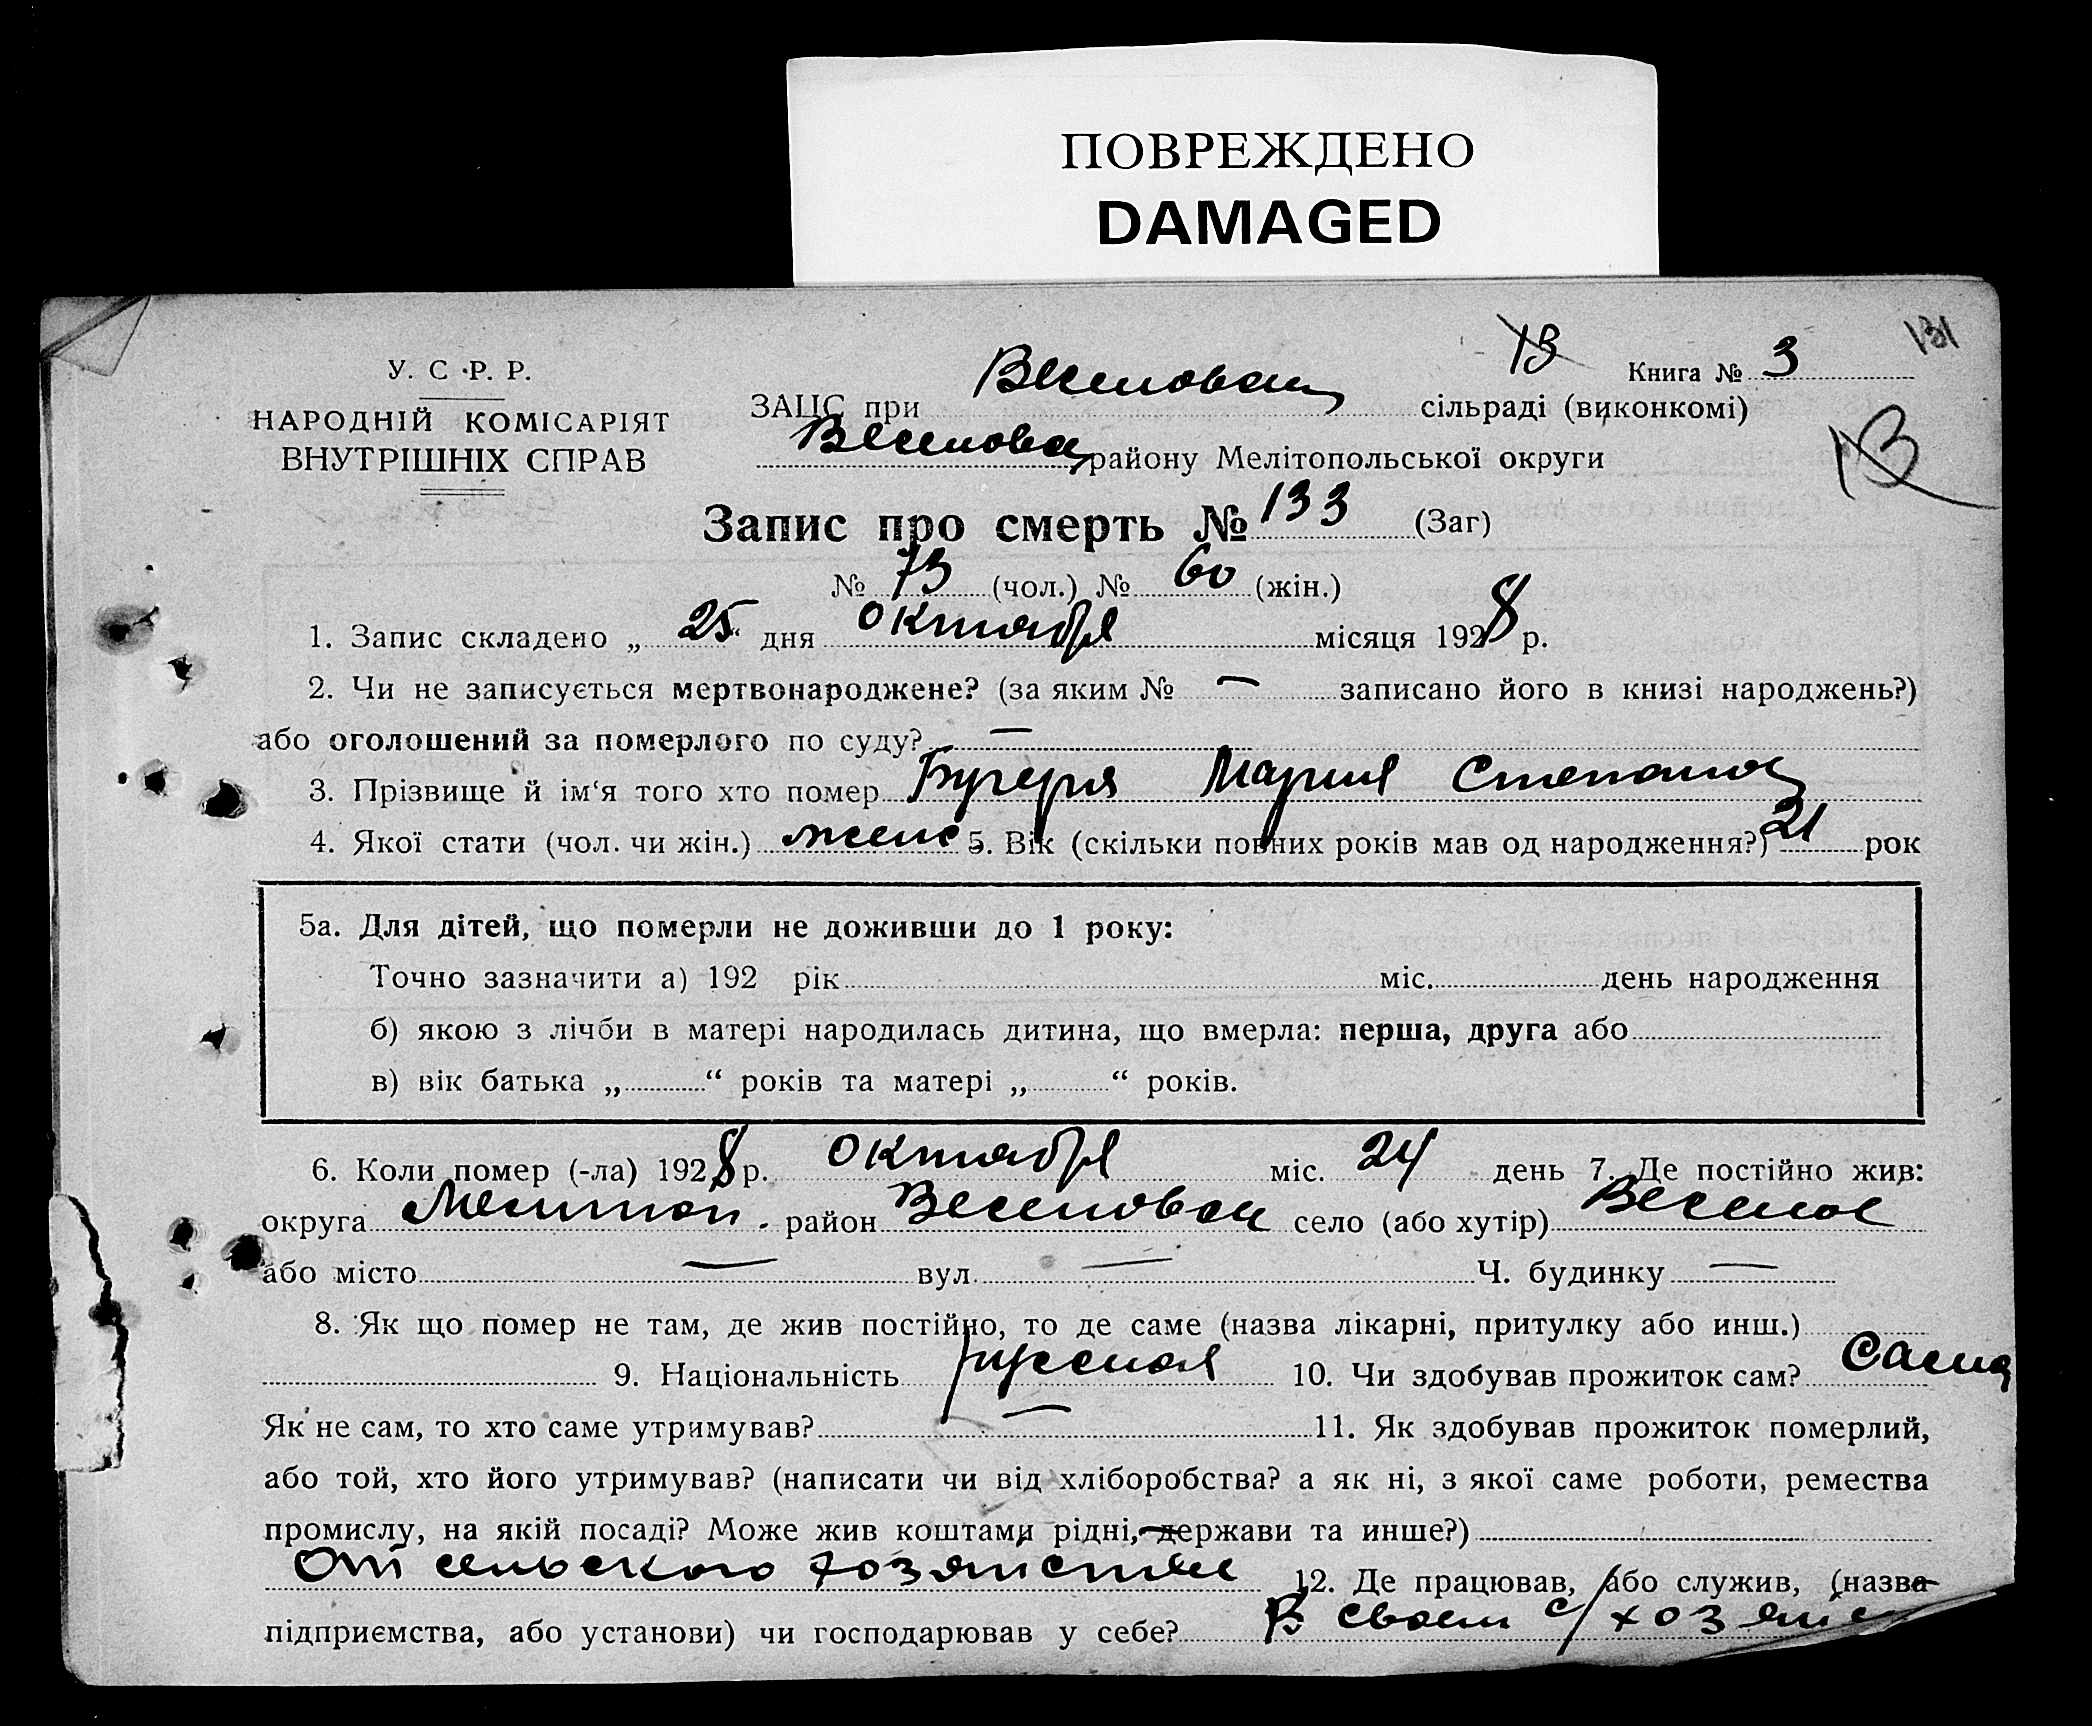 ПОВРЕЖДЕНО
DAMAGED
131
13
Книга № 3
У. С. Р. Р.
НАРОДНІЙ КОМІСАРІЯТ
ВНУТРІШНІХ СПРАВ
ЗАЦС при Веселовск сільраді (виконкомі)
Веселовск району Мелітопольської округи
13
Запис про смерть № 133 (Заг)
№ 73 (чол.) № 60 (жін.)
1. Запис складено „ 25 “ дня октября місяця 1928 р.
2. Чи не записується мертвонароджене? (за яким № — записано його в книзі народжень?)
або оголошений за померлого по суду? —
3. Прізвище й ім‘я того хто помер Бугеря Мария Степанов
4. Якої стати (чол. чи жін.) женс 5. Вік (скільки повних років мав од народження?) 21 рок
5а. Для дітей, що померли не доживши до 1 року:
Точно зазначити а) 192 рік міс. день народження
б) якою з лічби в матері народилась дитина, що вмерла: перша, друга або
в) вік батька „ “ років та матері „ “ років.
6. Коли помер (-ла) 1928 р. октября міс. 24 день 7. Де постійно жив:
округа Мелитоп. район Веселовск село (або хутір) Веселое
або місто — вул. — Ч. будинку —
8. Як що помер не там, де жив постійно, то де саме (назва лікарні, притулку або инш.)
9. Національність русская 10. Чи здобував прожиток сам? сама
Як не сам, то хто саме утримував? — 11. Як здобував прожиток померлий,
або той, хто його утримував? (написати чи від хліборобства? а як ні, з якої саме роботи, ремества
промислу, на якій посаді? Може жив коштами рідні, держави та инше?)
От сельского хозяиства 12. Де працював, або служив, (назва
підприємства, або установи) чи господарював у себе? В своем с/хозяис